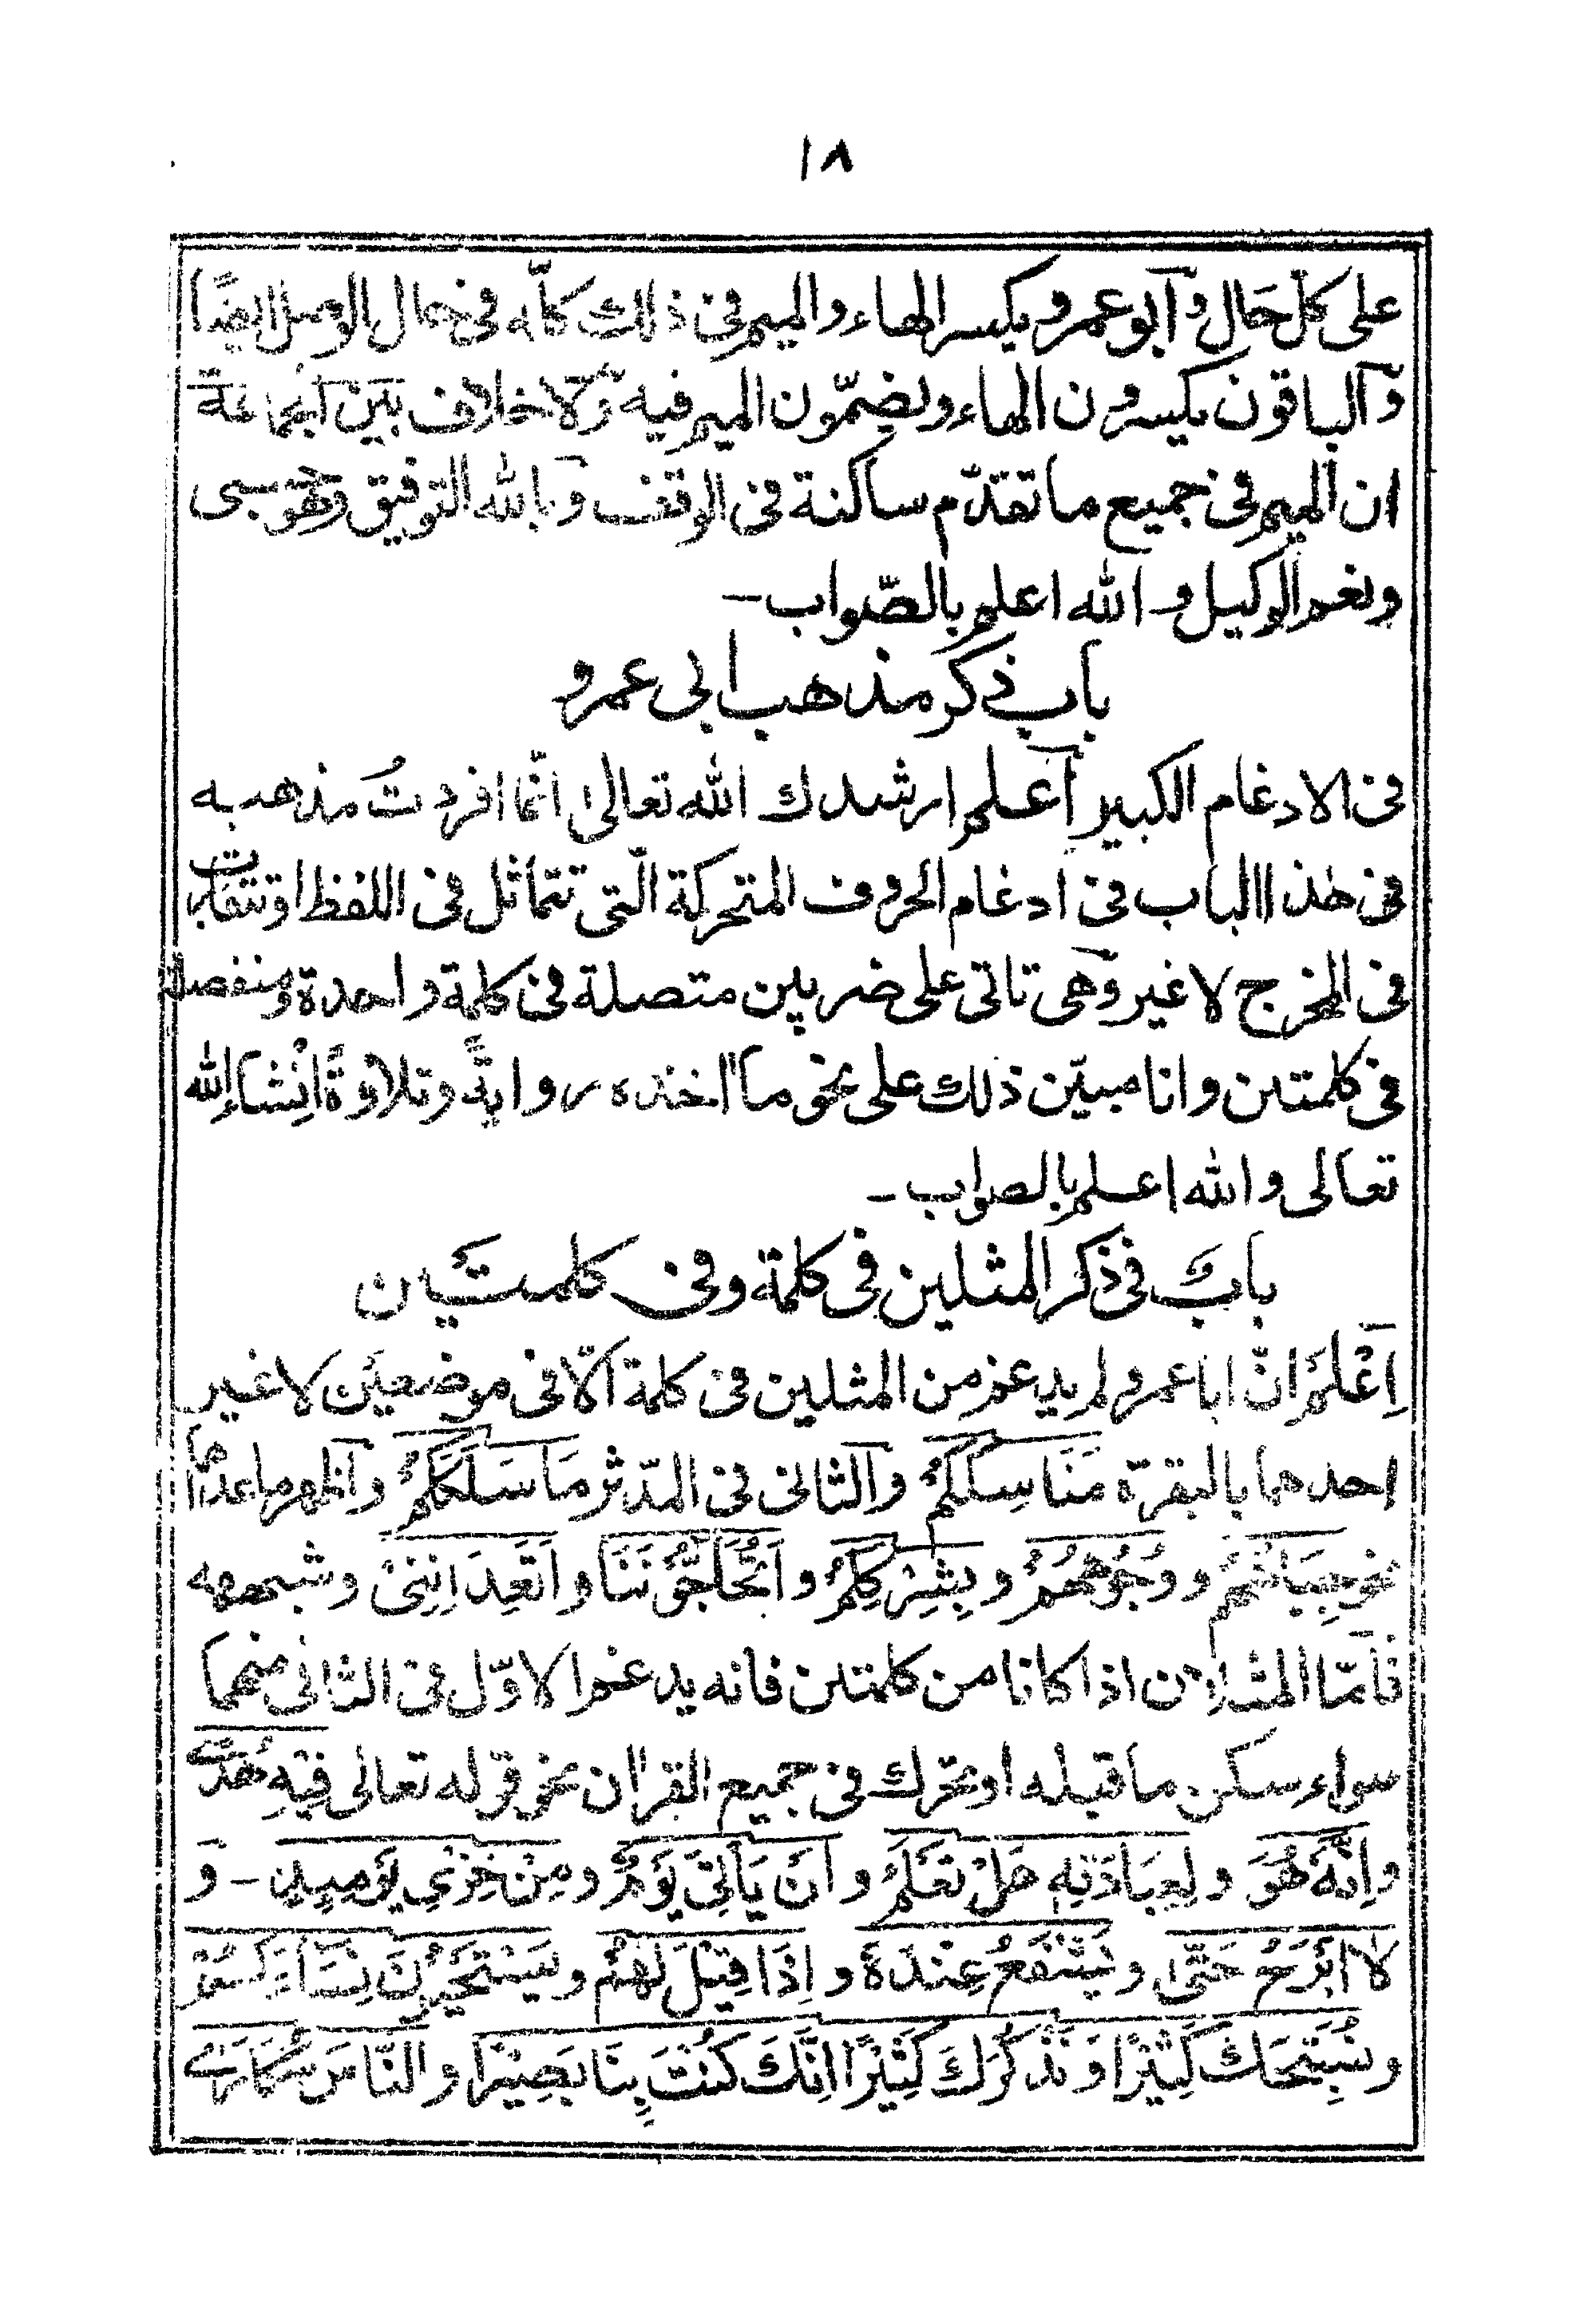 ١٨
على كلّ حَال وآبو عمرو يكسر الهاء والميم فى ذلك كلّه فى حال الوصل ايضًا
وآلباقون يكسرون الهاء ويضمّون الميم فيه ولا خلاف بين الجماعة
ان الميم فى جميع ما تقدّم ساكنة فى الوقف وبالله التوفيق وهو حسبى
ونعم الوكيل و الله اعلم بالصّواب ـ
باب ذكر مذهب ابى عمرو
فى الادغام الكبير آعلم ارشدك الله تعالىٰ انّما افردتُ مذهبه
فى هٰذا الباب فى ادغام الحروف المتحركة الّتى تتماثل فى اللفظ او تتقارب
فى المخرج لا غير وهى تاتى على ضربين متصلة فى كلمة واحدة ومنفصلة
فى كلمتين وانا مبيّن ذلك على نحو ما اخذه روايةً وتلاوةً انْشاءالله
تعالى والله اعلم بالصواب ـ
باب فى ذكر المثلين فى كلمة وفى كلمتين
اِعْلَمْ انّ ابا عمرو لم يدغم من المثلين فى كلمة الّا فى موضعين لا غير
احدهما بالبقرة مَنَاسِكَكُمْ وآلثانى فى المدّثر مَاسَلَكَكُمْ وآظهر ماعداهما
نحو جِبَاهُهُمْ و وُجُوْهُهُمْ و بِشِرْكِكُمْ و اَتُحَاجُّوْنَنَا و اَتَعِدَانِنِىْ وشبهه
فآمّا المثلان اذا كانا من كلمتين فانه يدغم الاوّل فى الثانى منهما
سواء سكن ما قبله او تحرك فى جميع القراٰن نحو قوله تعالى فِيْهِ هُدًى
و اِنَّهٗ هُوَ و لِعِبَادَتِهٖ هَلْ تَعْلَمُ و اَنْ يَأْتِىَ يَوْمٌ و مِنْ خِزْيِ يَوْمِئِذٍ ـ و
لَا اَبْرَحُ حَتّٰى و يَشْفَعُ عِنْدَهٗ و اِذَا قِيْلَ لَهُمْ و يَسْتَحْيُوْنَ نِسَآءَكُمْ
و نُسَبِّحَكَ كَثِيْرًا وَ نَذْكُرَكَ كَثِيْرًا اِنَّكَ كُنْتَ بِنَا بَصِيْرًا و النَّاسَ سُكَارٰى